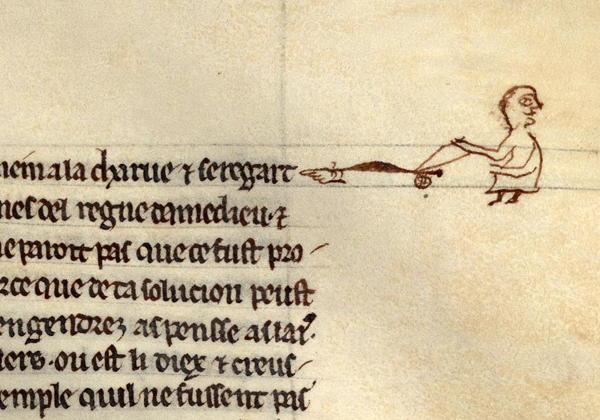 mein a la charue ⁊ se regart
nes del regne damedieu ⁊
ne paroit pas que ce fust pro
rce que de ta solucion peust
engendrez as
iers · ou est li diex ⁊ creus
emple quil ne fussent pas